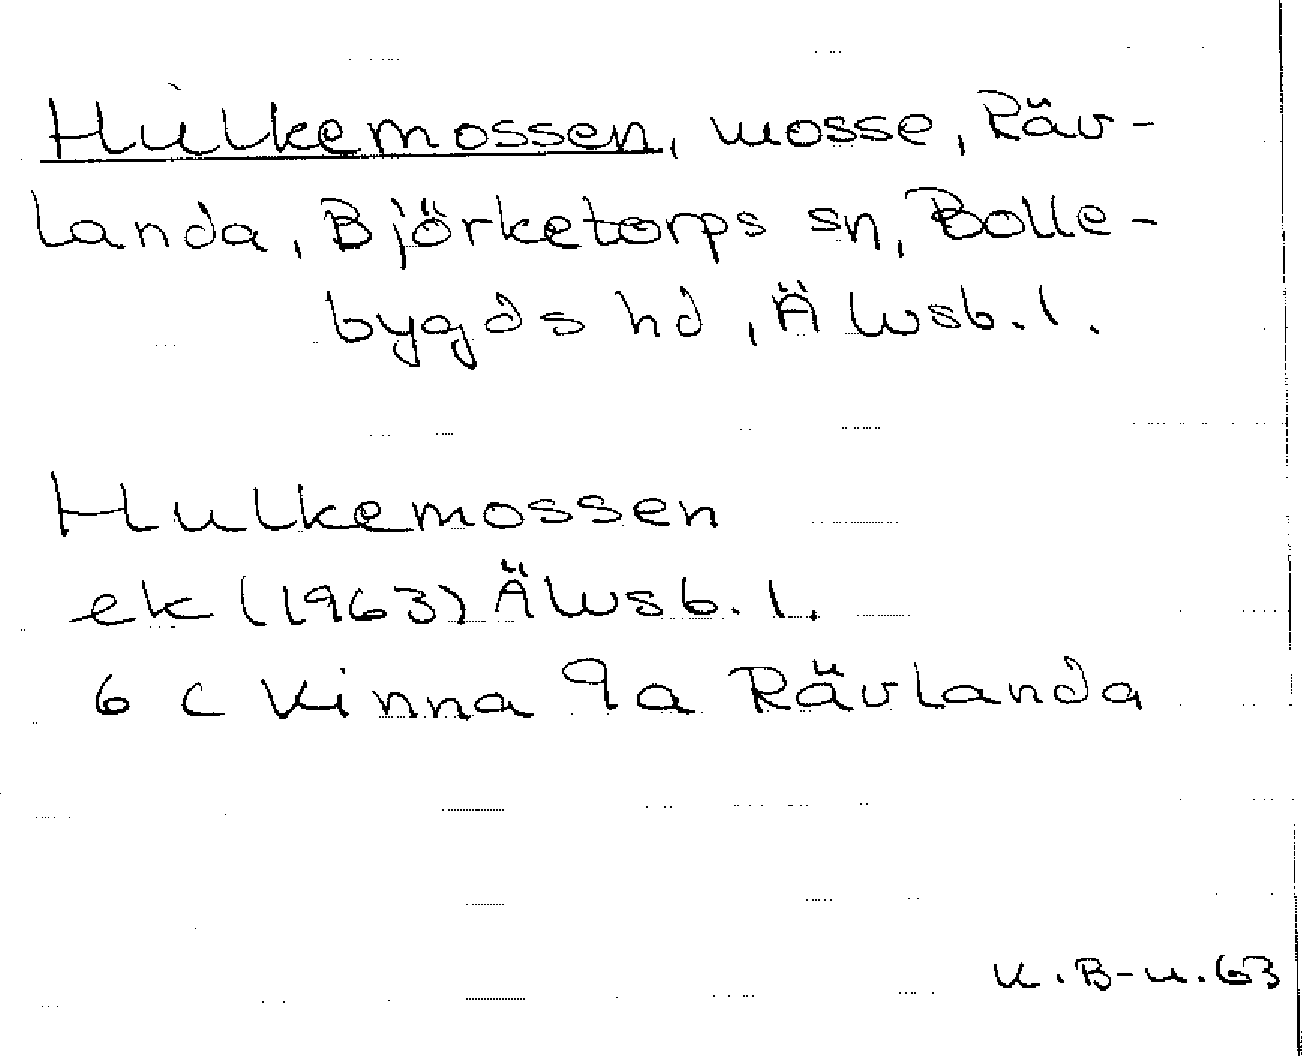 Hulkemossen, mosse, Räv-
landa, Björketorps sn, Bolle-
bygds hd, Älvsb. l.
Hulkemossen
ek (1963) Älvsb. l.
6 C Kinna 9a Rävlanda
K. B-n. 63